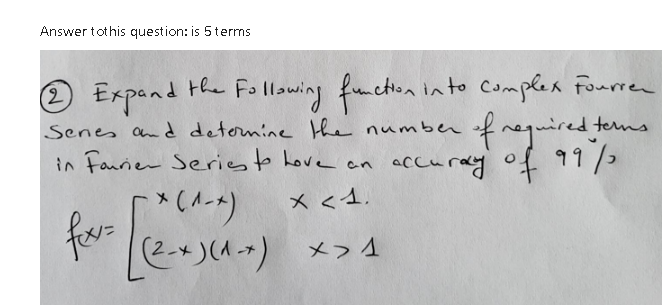 Answer tothis question: is 5 terms
② Expand the Following function into Complex Fourrer
Series and determine the number of required terms
in Fourier Series to have an accuracy of 99%
x(1-x) x<1.
f(x)=
(2-x)(1-x) x>1